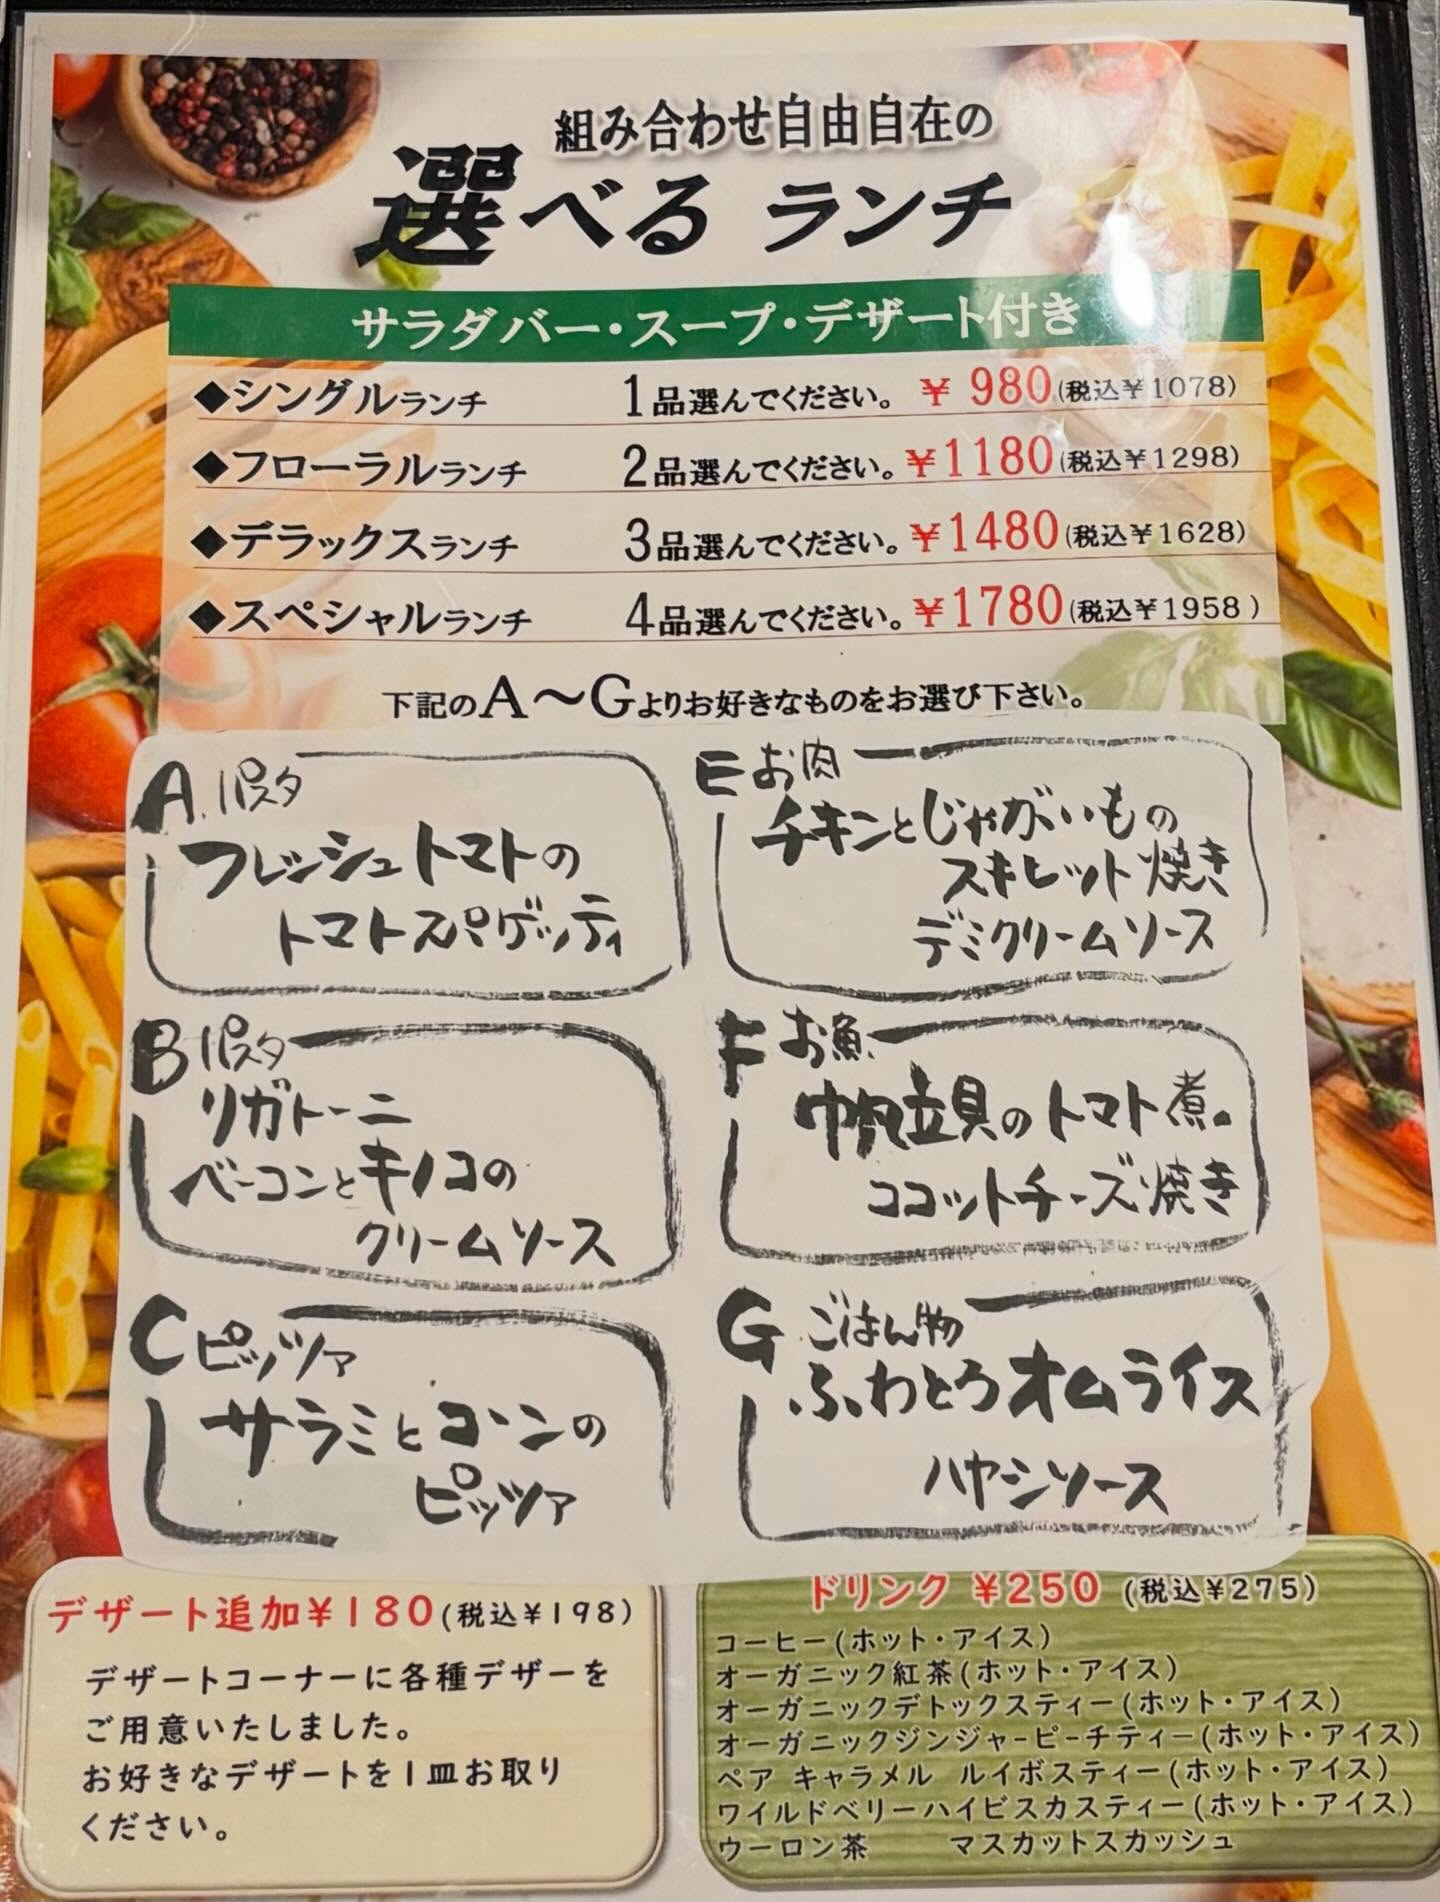 組み合わせ自由自在の
選べる ランチ
サラダバー・スープ・デザート付き
◆シングルランチ 1品選んでください。 ¥980(税込¥1078)
◆フローラルランチ 2品選んでください。 ¥1180(税込¥1298)
◆デラックスランチ 3品選んでください。 ¥1480(税込¥1628)
◆スペシャルランチ 4品選んでください。 ¥1780(税込¥1958)
下記のA～Gよりお好きなものをお選び下さい。
A.パスタ
フレッシュトマトの
トマトスパゲッティ
B パスタ
リガトーニ
ベーコンとキノコの
クリームソース
C ピッツァ
サラミとコーンの
ピッツァ
E お肉
チキンとじゃがいもの
スキレット焼き
デミクリームソース
F お魚
帆立貝のトマト煮
ココットチーズ焼き
G ごはん物
ふわとろオムライス
ハヤシソース
デザート追加¥180(税込¥198)
デザートコーナーに各種デザーを
ご用意いたしました。
お好きなデザートを1皿お取り
ください。
ドリンク ¥250 (税込¥275)
コーヒー(ホット・アイス)
オーガニック紅茶(ホット・アイス)
オーガニックデトックスティー(ホット・アイス)
オーガニックジンジャーピーチティー(ホット・アイス)
ペア キャラメル ルイボスティー(ホット・アイス)
ワイルドベリーハイビスカスティー(ホット・アイス)
ウーロン茶 マスカットスカッシュ